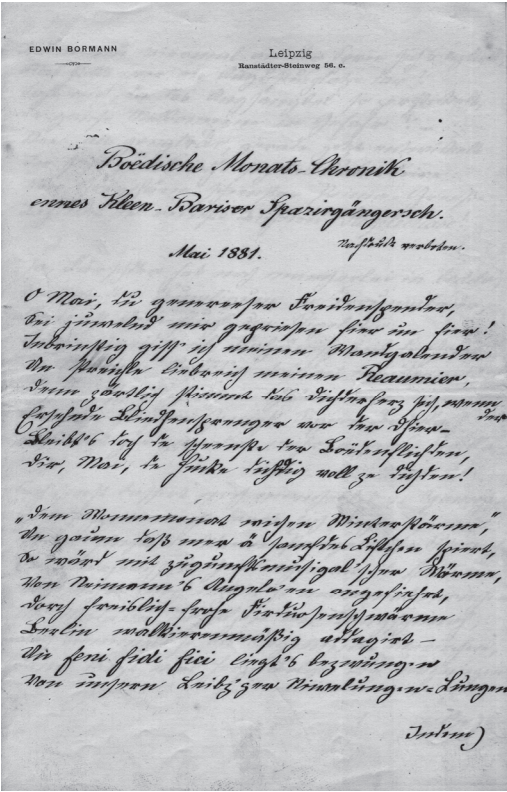 EDWIN BORMANN
Leipzig
Ranstädter-Steinweg 56. c.
Boëdische Monats-Chronik
ennes Kleen-Bariser Spazirgängersch.
Nachdruck verboten.
Mai 1881.
O Mai, du genereeser Freidenspender,
Sei juwelnd mir gepriesen hier un hier!
Inbrinstig giss' ich meinen Wandgalender
Un streichle liebreich meinen Reaumier,
denn zärtlich stimmt das Dichderherz sich, wenn der
Erschde Bliedhensprenger vor der Dhier –
Bleibt's doch de scheenste der Boëdenflichden,
Dir, Mai, de Hucke dichdig voll ze dichden!
„Dem Wonnemonat wichen Winterstärme,"
Un gaum daß mer ä sanfdes Liftchen spiert,
So wärd mit zugunftsmusigal'scher Wärme,
Von Neimann's Angelo'en angefiehrt,
Dorch freislich-frohe Firduosenschwärme
Berlin walkierenmäßig addagirt –
Un feni fidi fici liegt's bezwungen
Von unsern Leibz'ger Niwelungen-Lungen